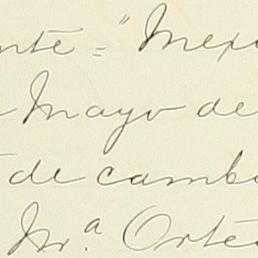 nte = "Mexi
Mayo de
de camb
M.ª Orte